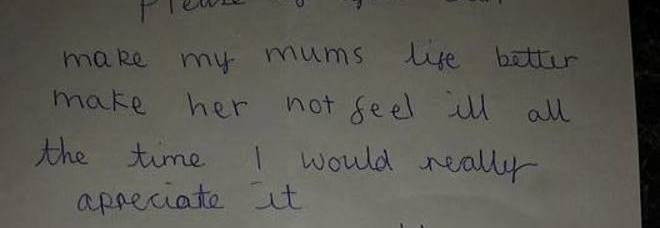 Please
make my mums life better
make her not feel ill all
the time I would really
apreciate it